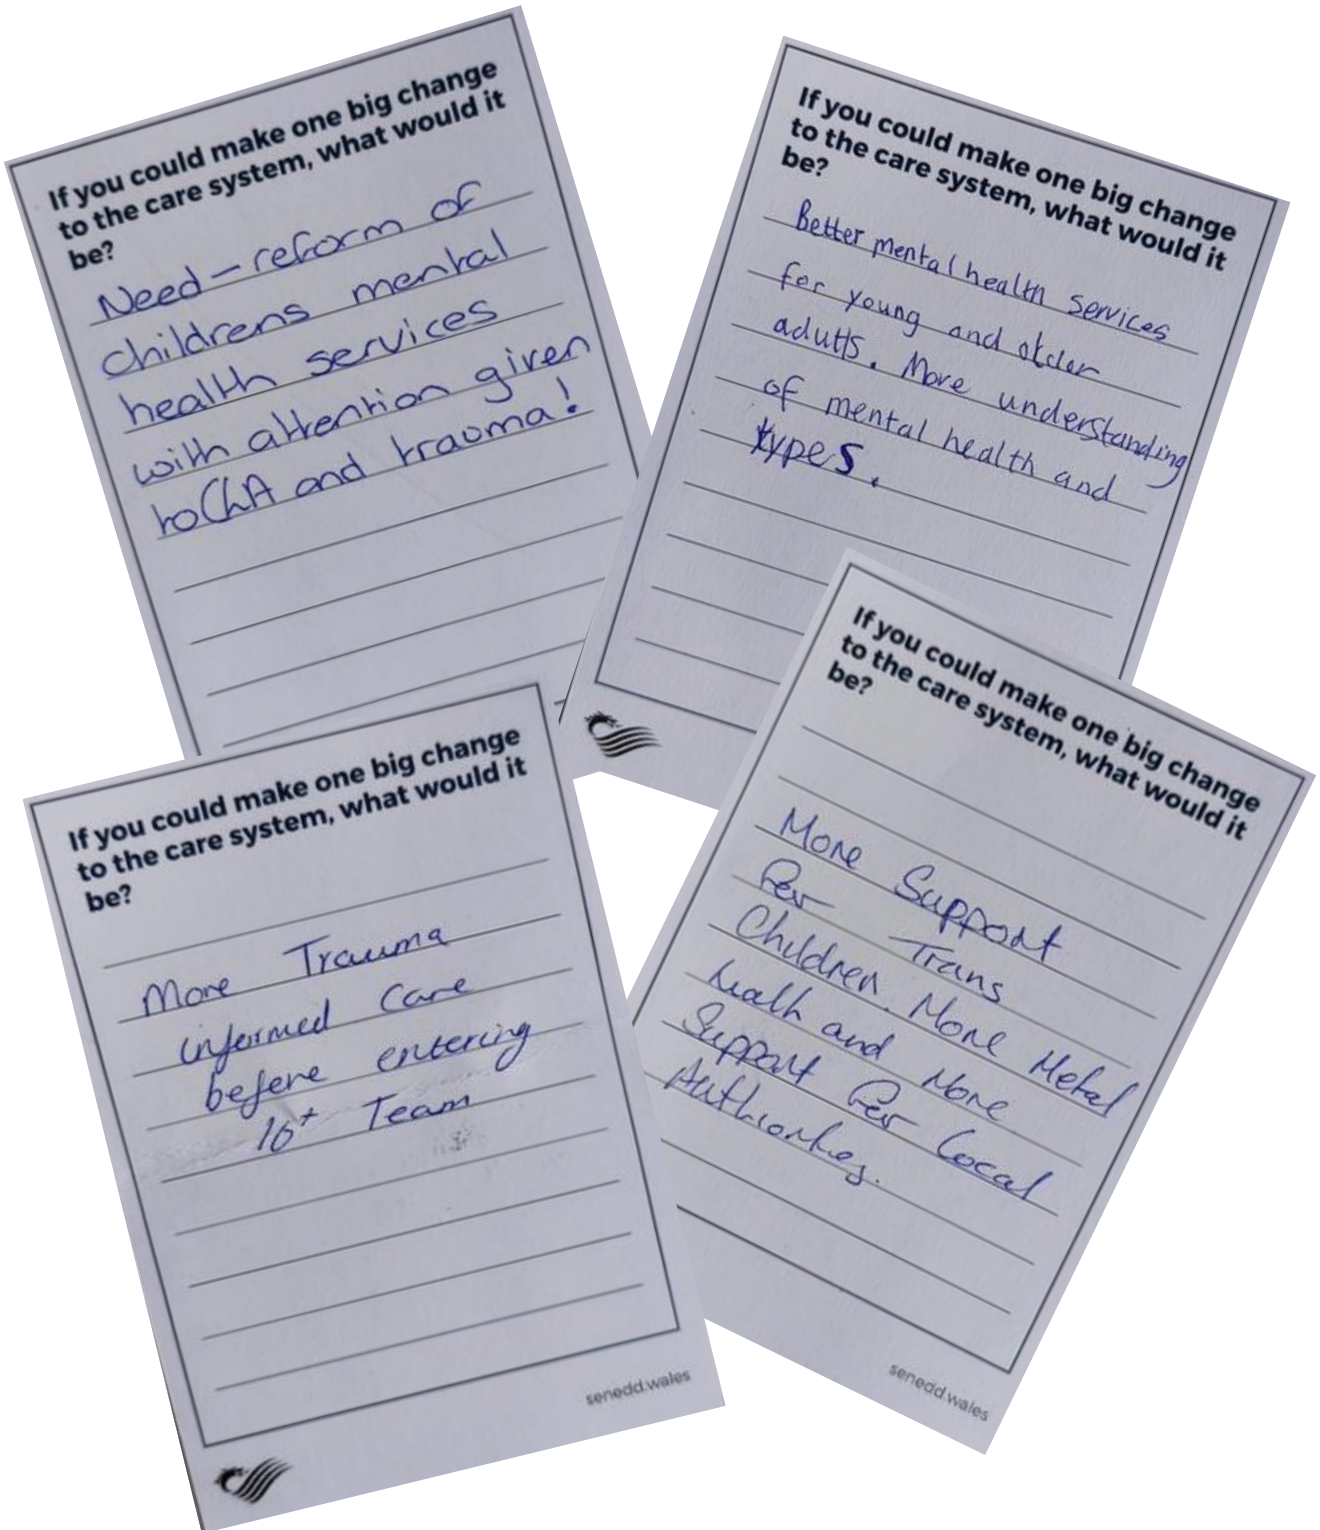 If you could make one big change
to the care system, what would it
be?
Need - reform of
childrens mental
health services
with attention given
to ChA and trauma!
If you could make one big change
to the care system, what would it
be?
Better mental health services
for young and older
adults. More understanding
of mental health and
types.
If you could make one big change
to the care system, what would it
be?
More Trauma
informed Care
before entering
16+ Team
senedd.wales
If you could make one big change
to the care system, what would it
be?
More Support
for Trans
Children. More Metal
health and More
Support for Local
Authorities.
senedd.wales